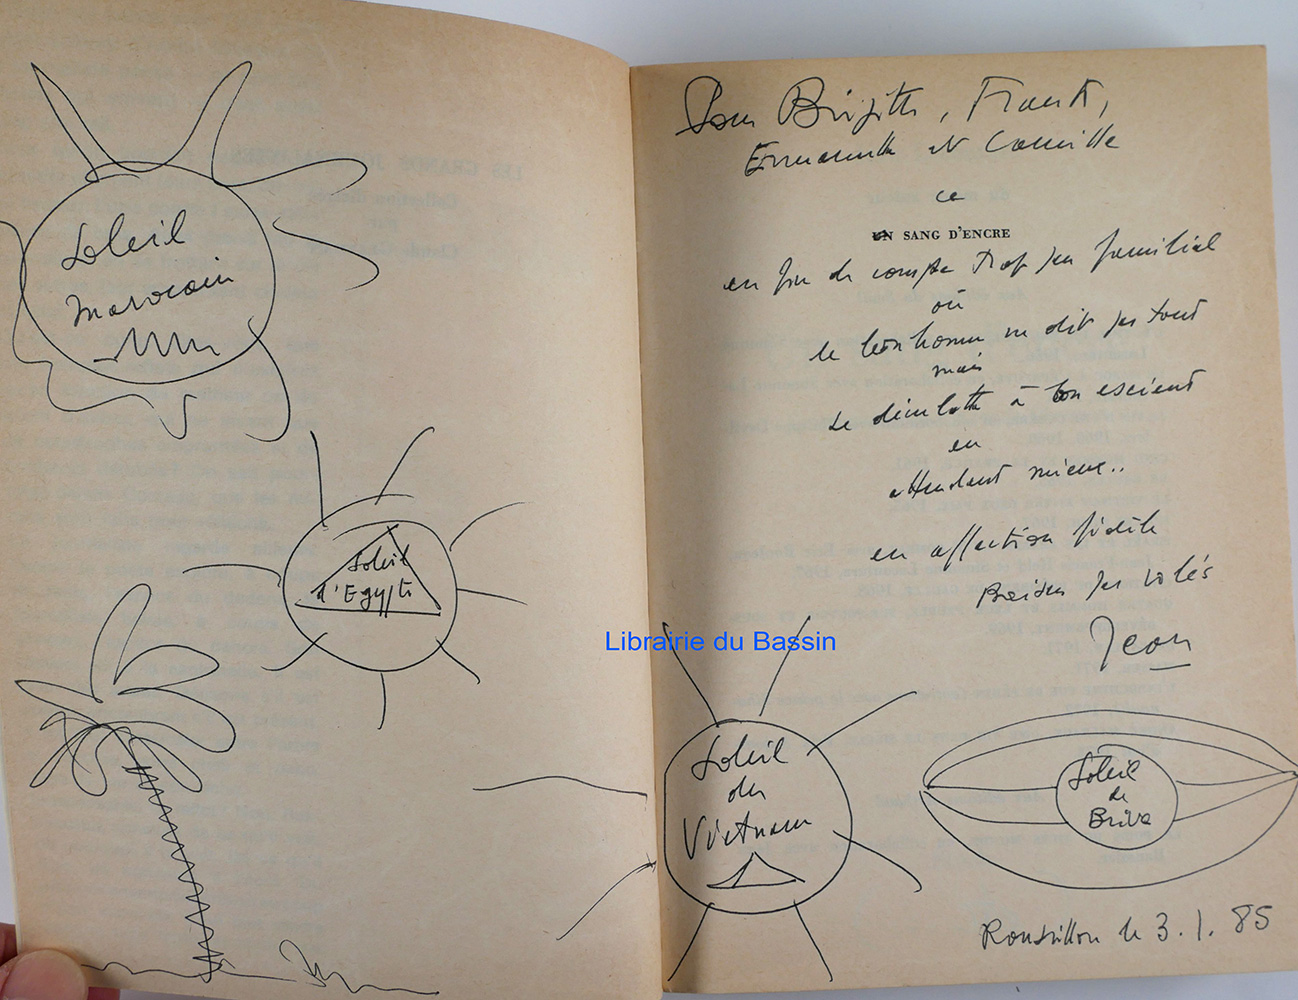 Soleil
marocain
Soleil
d'Egypte
Pour Brigitte, Franck,
Emmanuelle et Camille
ce
UN SANG D'ENCRE
en fin de compte trop peu familial
où
le bonhomme ne dit pas tout
mais
se déculotte à bon escient
en
attendant mieux..
en affection fidèle
Baisers pas volés
Jean
Librairie du Bassin
Soleil
du
Vietnam
Soleil
de
Brive
Roussillon le 3.1.85